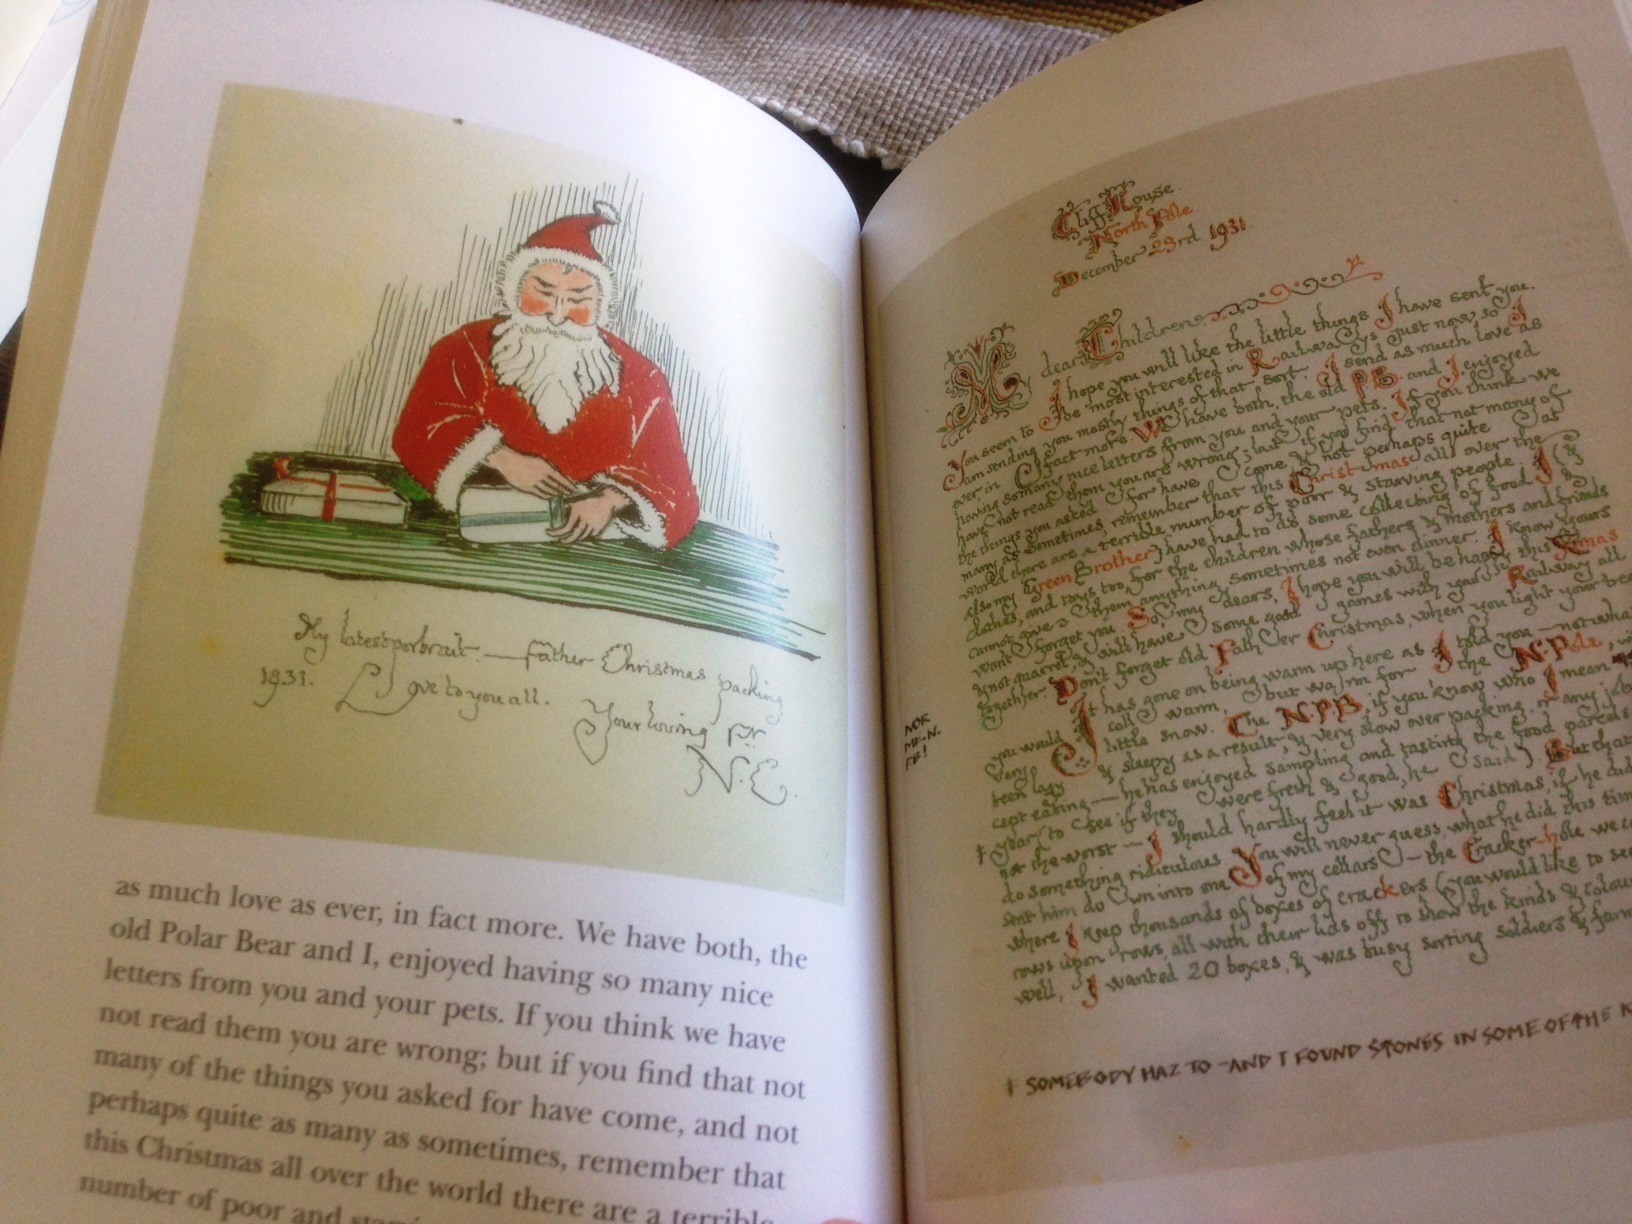 My latest portrait. — Father Christmas packing
1931. Love to you all. Your loving Fr.
N.C.
as much love as ever, in fact more. We have both, the
old Polar Bear and I, enjoyed having so many nice
letters from you and your pets. If you think we have
not read them you are wrong; but if you find that not
many of the things you asked for have come, and not
perhaps quite as many as sometimes, remember that
this Christmas all over the world there are a terrible
number of poor and
Cliff House
North Pole
December 23rd 1931.
My dear Children
I hope you will like the little things I have sent you.
You seem to be most interested in Railways just now, so I
am sending you mostly things of that sort. I send as much love as
ever in fact more. We have both, the old P.B. and I, enjoyed
having so many nice letters from you and your pets. If you think we
have not read them you are wrong; but if you find that not many of
the things you asked for have come & not perhaps quite as
many as sometimes, remember that this Christmas all over the
world there are a terrible number of poor & starving people. I
(& also my Green Brother) have had to do some collecting of food &
clothes, and toys too, for the children whose fathers & mothers and friends
cannot give them anything, sometimes not even dinner. I know yours
won't forget you. So, my dears, I hope you will be happy this Xmas
& not quarrel, & will have some good games with your Railway all
together. Don't forget old Father Christmas, when you light your tree
It has gone on being warm up here as I told you — not what
you would call warm, but warm for the N. Pole,
very little snow. The N.P.B., if you know who I mean
been lazy & sleepy as a result, & very slow over packing, or any job
cept eating — he has enjoyed sampling and tasting the food parcels
year (to see if they were fresh & good, he said). But that
not the worst — I should hardly feel it was Christmas, if he did
do something ridiculous. You will never guess what he did this time
sent him down into one of my cellars — the Cracker-hole we
where I keep thousands of boxes of crackers (you would like to see
rows upon rows, all with their lids off to show the kinds &
Well, I wanted 20 boxes, & was busy sorting soldiers & farm
‡ SOMEBODY HAZ TO — AND I FOUND STONES IN SOME OF THE